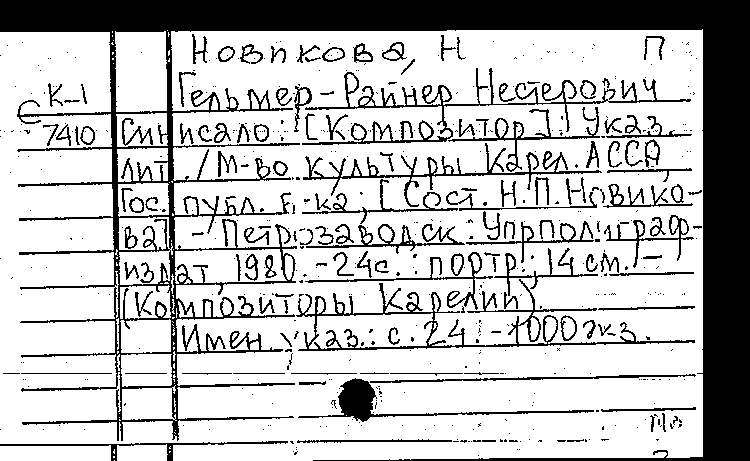 Новикова, Н П
К-1 Гельмер-Райнер Нестерович
С 7410 Синисало: [Композитор]: Указ.
лит. / М-во культуры Карел. АССР,
Гос. публ. б-ка; [Сост. Н.П. Новико-
ва]. - Петрозаводск: Упрполиграф-
издат, 1980. - 24с.: портр.; 14 см. -
(Композиторы Карелии).
Имен. указ.: с. 24. - 1000 экз.